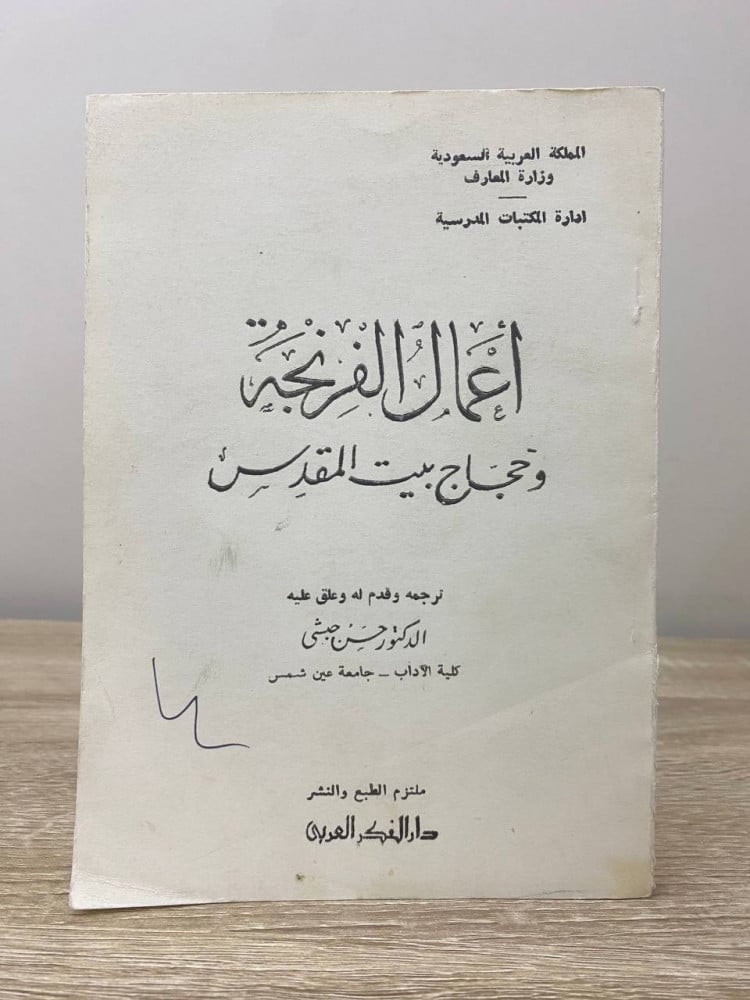 المملكة العربية السعودية
وزارة المعارف
ادارة المكتبات المدرسية
أَعْمَالُ الفِرِنْجَةِ
وحجَاج بيت المقدِسِ
ترجمه وقدم له وعلق عليه
الدكتور حسَن حبشى
كلية الآداب ــ جامعة عين شمس
ملتزم الطبع والنشر
دار الفكر العربى